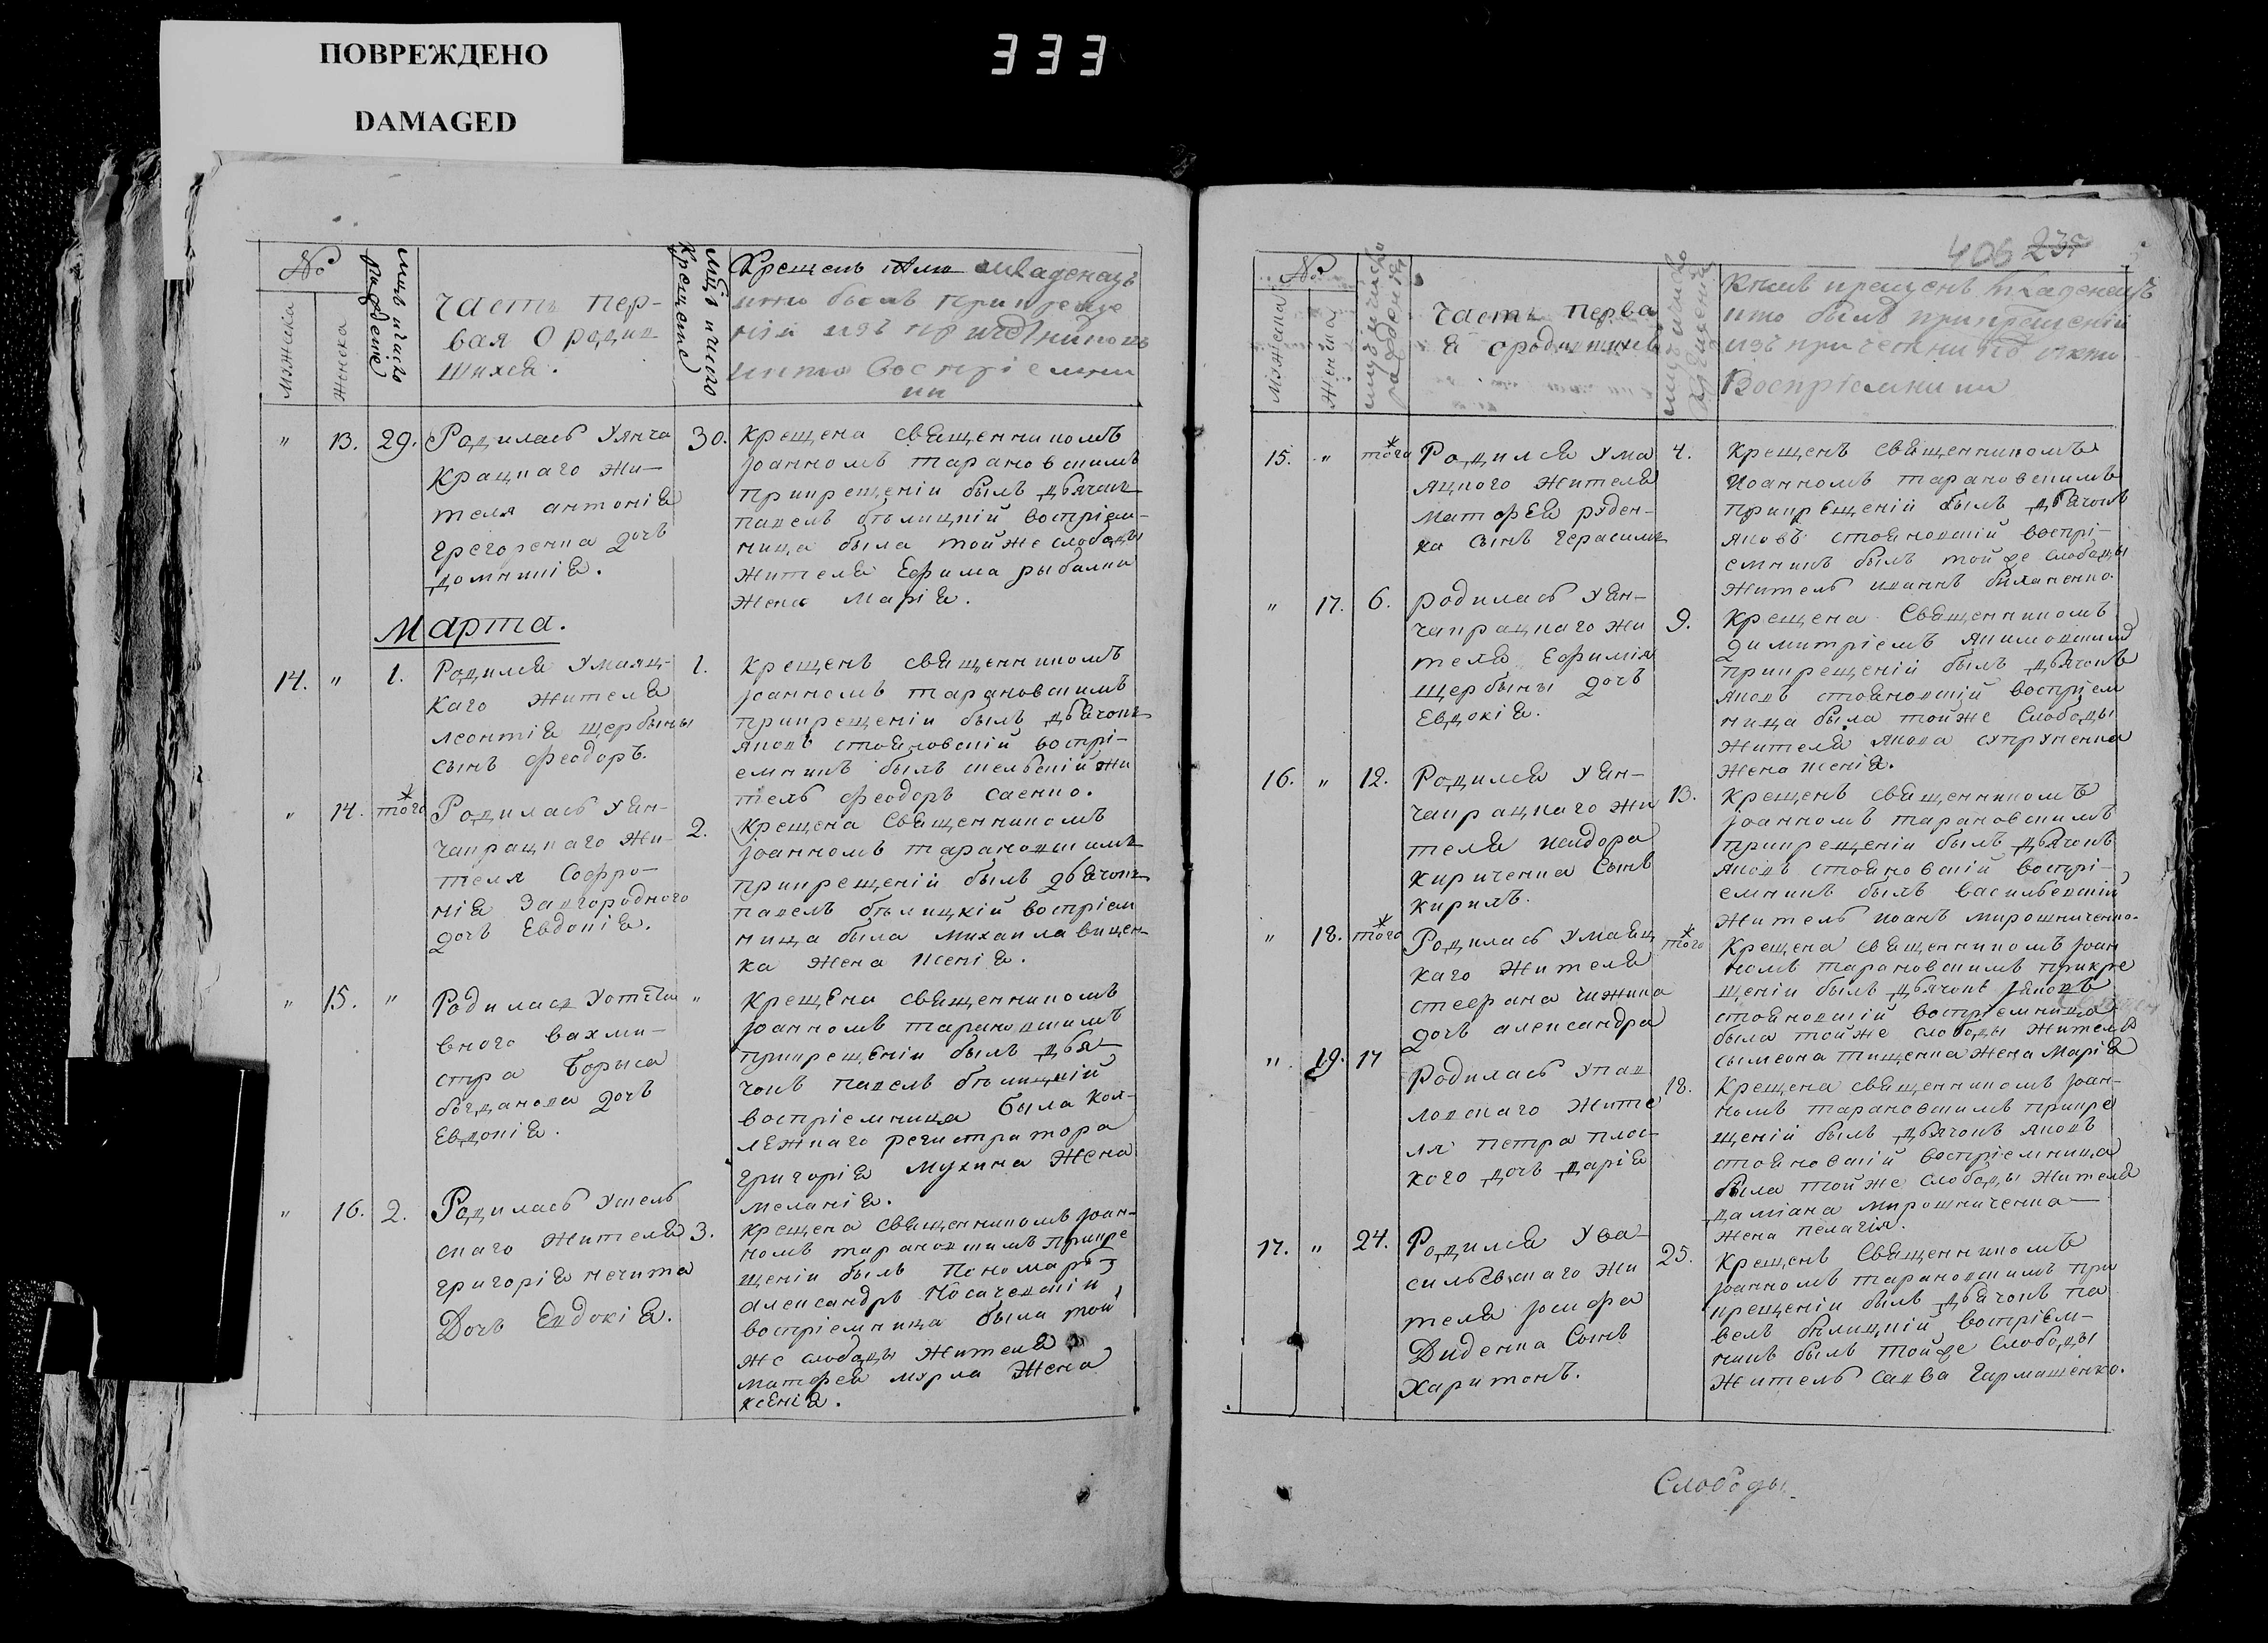 ПОВРЕЖДЕНО
DAMAGED
333
№
Мужеска
Женска
Часть пер-
вая О родив
шихся.
Крещенъ младенецъ
кто былъ при креще
ніи изъ
и кто воспріемни
ки
" 13. 29.
Родилась У янча
крацкаго жи-
теля антонія
грегоренка дочь
домникія.
30.
Крещена священникомъ
Іоанномъ тарановскимъ
при крещеніи былъ дьячокъ
павелъ бѣлицкій воспріем-
ница была тойже слободы
жителя Ефима рыбалки
жена Марія.
Марта.
14. " 1.
Родился У маяц-
каго жителя
леонтія щербины
сынъ феодоръ.
1.
Крещенъ священникомъ
Іоанномъ тарановскимъ
при крещеніи былъ дьячокъ
яковъ стояновскій воспрі-
емникъ былъ шельскій жи
тель феодоръ саенко.
" 14. того
Родилась У ян-
чакрацкаго жи-
теля Софро-
нія Завгороднего
дочь Евдокія.
2.
Крещена Священникомъ
Іоанномъ тарановскимъ
при крещеніи былъ дьячокъ
павелъ бѣлицкій воспріем
ница была михаила вицен-
ка жена ксенія.
" 15. "
Родилась У
вного вахми-
стра Бориса
богданова дочь
Евдокія.
"
Крещена священникомъ
Іоанномъ тарановскимъ
при крещеніи былъ дья-
чокъ павелъ бѣлицкій
воспріемница была кол-
лежкаго регистратора
григорія Мухина жена
меланія.
" 16. 2.
Родилась У шель
скаго жителя
григорія нечита
Дочь Евдокія.
3.
Крещена Священникомъ Іоан-
номъ тарановскимъ при кре
щеніи былъ Пономарь
александръ Косачевскій
воспріемница была той
же слободы жителя
матфея мурла жена
ксенія.
406 235
№
Мужеска
Женска
Часть перва
я о родившихся
Кѣмъ крещенъ младенецъ
кто былъ при крещеніи
изъ причетниковъ и кто
Воспріемники
15. " того
Родился У ма
яцкого жителя
матфея руден-
ка сынъ герасимъ
4.
Крещенъ священникомъ
Иоанномъ тарановскимъ
при крещеніи былъ дьячокъ
яковъ стояновскій воспрі-
емникъ былъ той же слободы
житель иваннъ
" 17. 6.
Родилась У ян-
чакрацкаго жи
теля Ефимія
щербины дочь
Евдокія.
9.
Крещена Священникомъ
Димитріемъ якимовскимъ
при крещеніи былъ дьячокъ
яковъ стояновскій воспріем
ница была тойже слободы
жителя якова супруненка
жена ксенія.
16. " 12.
Родился У ян-
чакрацкаго жи
теля исидора
кириченка Сынъ
кирилъ.
13.
Крещенъ священникомъ
Іоанномъ тарановскимъ
при крещеніи былъ дьячокъ
яковъ стояновскій воспрі-
емникъ былъ васильевскій
житель иоанъ мирошниченко.
" 18. того
Родилась У маяц
каго жителя
стефана чижика
дочь александра
того
Крещена священникомъ Іоан
номъ тарановскимъ при кре
щеніи былъ дьячокъ яковъ
стояновскій воспріемница
была тойже слободы жителя
сымеона тищенка жена Марія
" 19. 17
Родилась У пав
ловскаго жите
ля петра плос-
кого дочь дарія
18.
Крещена священникомъ Іоан-
номъ тарановскимъ при кре
щеній былъ дьячокъ яковъ
стояновскій воспріемница
была тойже слободы жителя
даміана мирошниченка
жена пелагія.
17. " 24.
Родился У ва-
сильевскаго жи
теля Іосифа
Диденка Сынъ
Харитонъ.
25.
Крещенъ Священникомъ
Іоанномъ тарановскимъ при
крещеніи былъ дьячокъ па
велъ бѣлицкій воспріем-
никъ былъ той же слободы
житель савва гармашенко.
Слободы